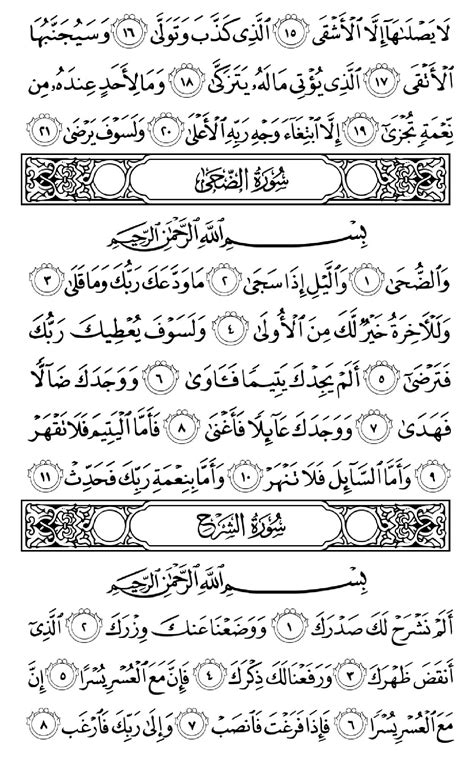 لَا يَصْلَىٰهَآ إِلَّا ٱلْأَشْقَى ١٥ ٱلَّذِى كَذَّبَ وَتَوَلَّىٰ ١٦ وَسَيُجَنَّبُهَا
ٱلْأَتْقَى ١٧ ٱلَّذِى يُؤْتِى مَالَهُۥ يَتَزَكَّىٰ ١٨ وَمَا لِأَحَدٍ عِندَهُۥ مِن
نِّعْمَةٍ تُجْزَىٰٓ ١٩ إِلَّا ٱبْتِغَآءَ وَجْهِ رَبِّهِ ٱلْأَعْلَىٰ ٢٠ وَلَسَوْفَ يَرْضَىٰ ٢١
سُورَةُ الضُّحَىٰ
بِسْمِ ٱللَّهِ ٱلرَّحْمَٰنِ ٱلرَّحِيمِ
وَٱلضُّحَىٰ ١ وَٱلَّيْلِ إِذَا سَجَىٰ ٢ مَا وَدَّعَكَ رَبُّكَ وَمَا قَلَىٰ ٣
وَلَلْـَٔاخِرَةُ خَيْرٌ لَّكَ مِنَ ٱلْأُولَىٰ ٤ وَلَسَوْفَ يُعْطِيكَ رَبُّكَ
فَتَرْضَىٰٓ ٥ أَلَمْ يَجِدْكَ يَتِيمًا فَـَٔاوَىٰ ٦ وَوَجَدَكَ ضَآلًّا
فَهَدَىٰ ٧ وَوَجَدَكَ عَآئِلًا فَأَغْنَىٰ ٨ فَأَمَّا ٱلْيَتِيمَ فَلَا تَقْهَرْ
٩ وَأَمَّا ٱلسَّآئِلَ فَلَا تَنْهَرْ ١٠ وَأَمَّا بِنِعْمَةِ رَبِّكَ فَحَدِّثْ ١١
سُورَةُ الشَّرْحِ
بِسْمِ ٱللَّهِ ٱلرَّحْمَٰنِ ٱلرَّحِيمِ
أَلَمْ نَشْرَحْ لَكَ صَدْرَكَ ١ وَوَضَعْنَا عَنكَ وِزْرَكَ ٢ ٱلَّذِىٓ
أَنقَضَ ظَهْرَكَ ٣ وَرَفَعْنَا لَكَ ذِكْرَكَ ٤ فَإِنَّ مَعَ ٱلْعُسْرِ يُسْرًا ٥ إِنَّ
مَعَ ٱلْعُسْرِ يُسْرًا ٦ فَإِذَا فَرَغْتَ فَٱنصَبْ ٧ وَإِلَىٰ رَبِّكَ فَٱرْغَب ٨